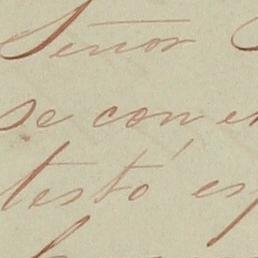 Señor
se con
testó